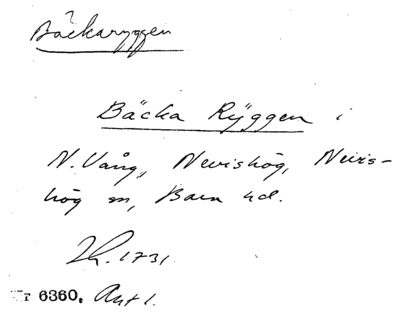 Bäckaryggen
Bäcka Rÿggen i
N. Vång, Nevishög, Nevis-
hög sn, Bara hd.
1731.
6360. Ant 1.